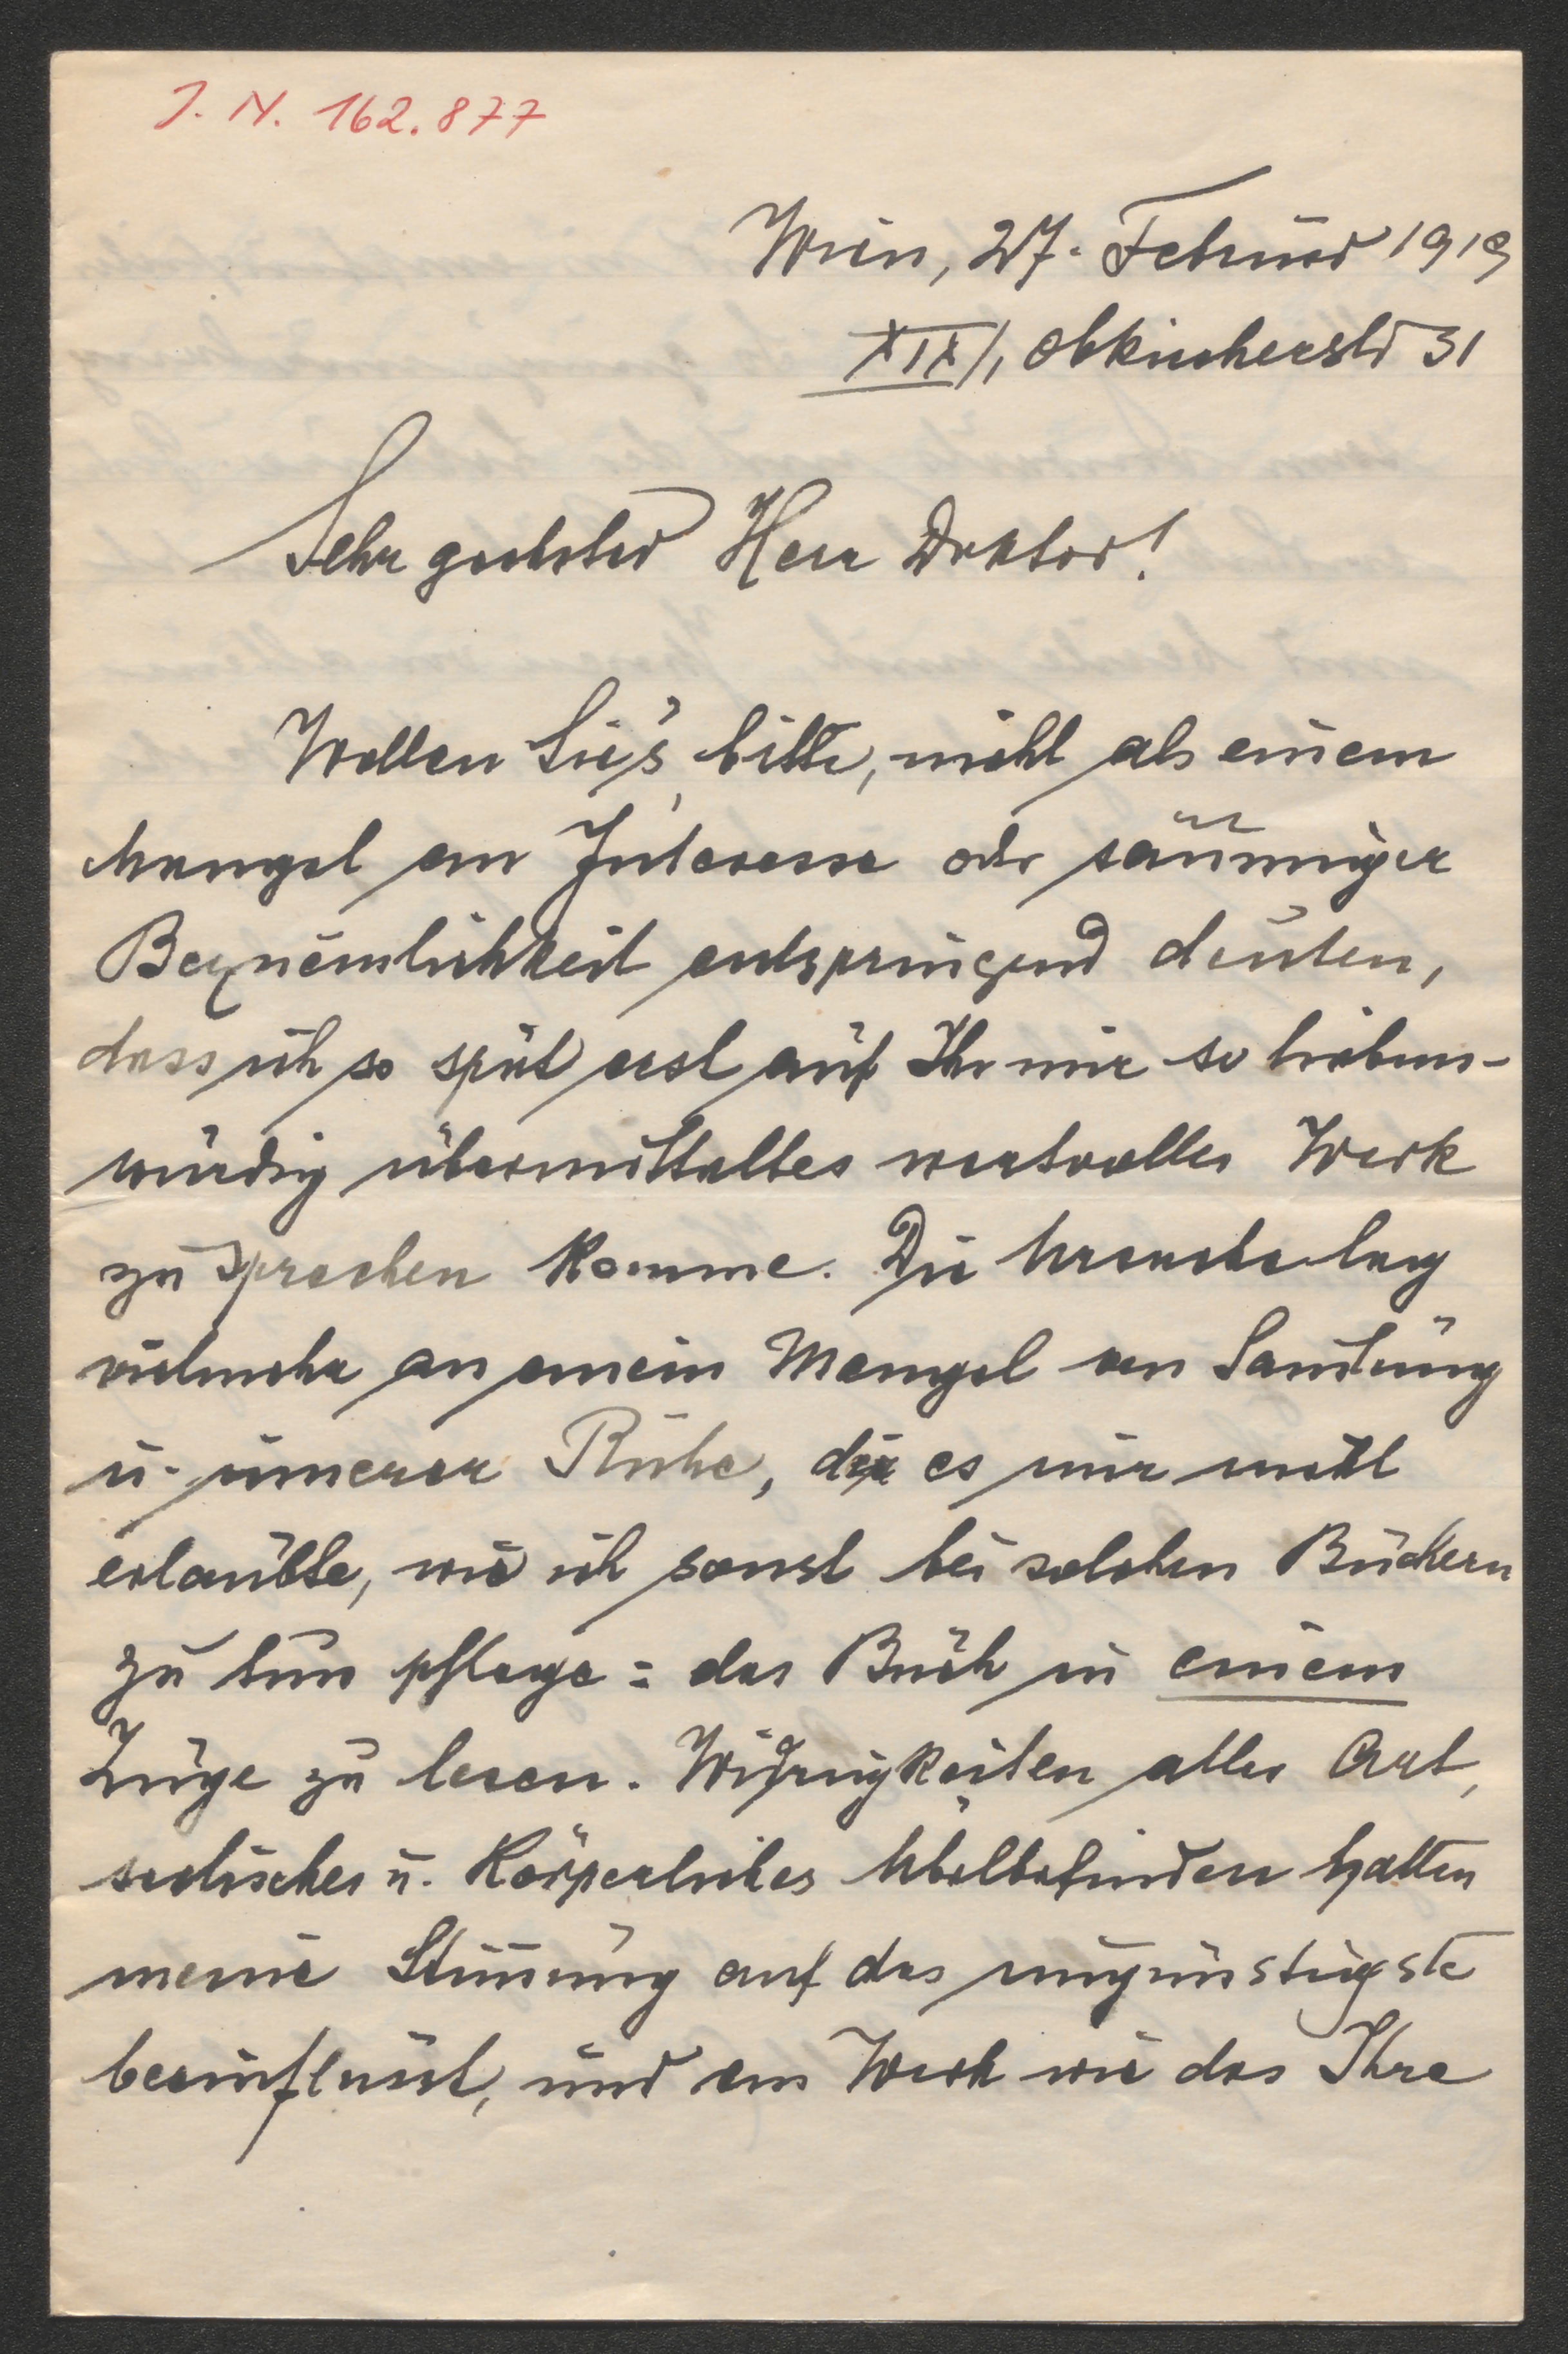 J. N. 162.877
Wien, 27. Februar 1919
XIX/1, Obkircherstr 31
Sehr geehrter Herr Doktor!
Wollen Sie's, bitte, nicht als einem
Mangel an Interesse oder säumiger
Bequemlichkeit entspringend deuten,
dass ich so spät erst auf Ihr mir so liebens-
würdig übermitteltes wertvolles Werk
zu sprechen komme. Die Ursache lag
vielmehr an einem Mangel an Samlung
u. innerer Ruhe, die es mir nicht
erlaubte, wie ich sonst bei solchen Büchern
zu tun pflege: das Buch in einem
Zuge zu lesen. Widrigkeiten aller Art,
seelisches u. körperliches Übelbefinden hatten
meine Stimung auf das ungünstigste
beeinflusst, und ein Werk wie das Ihre